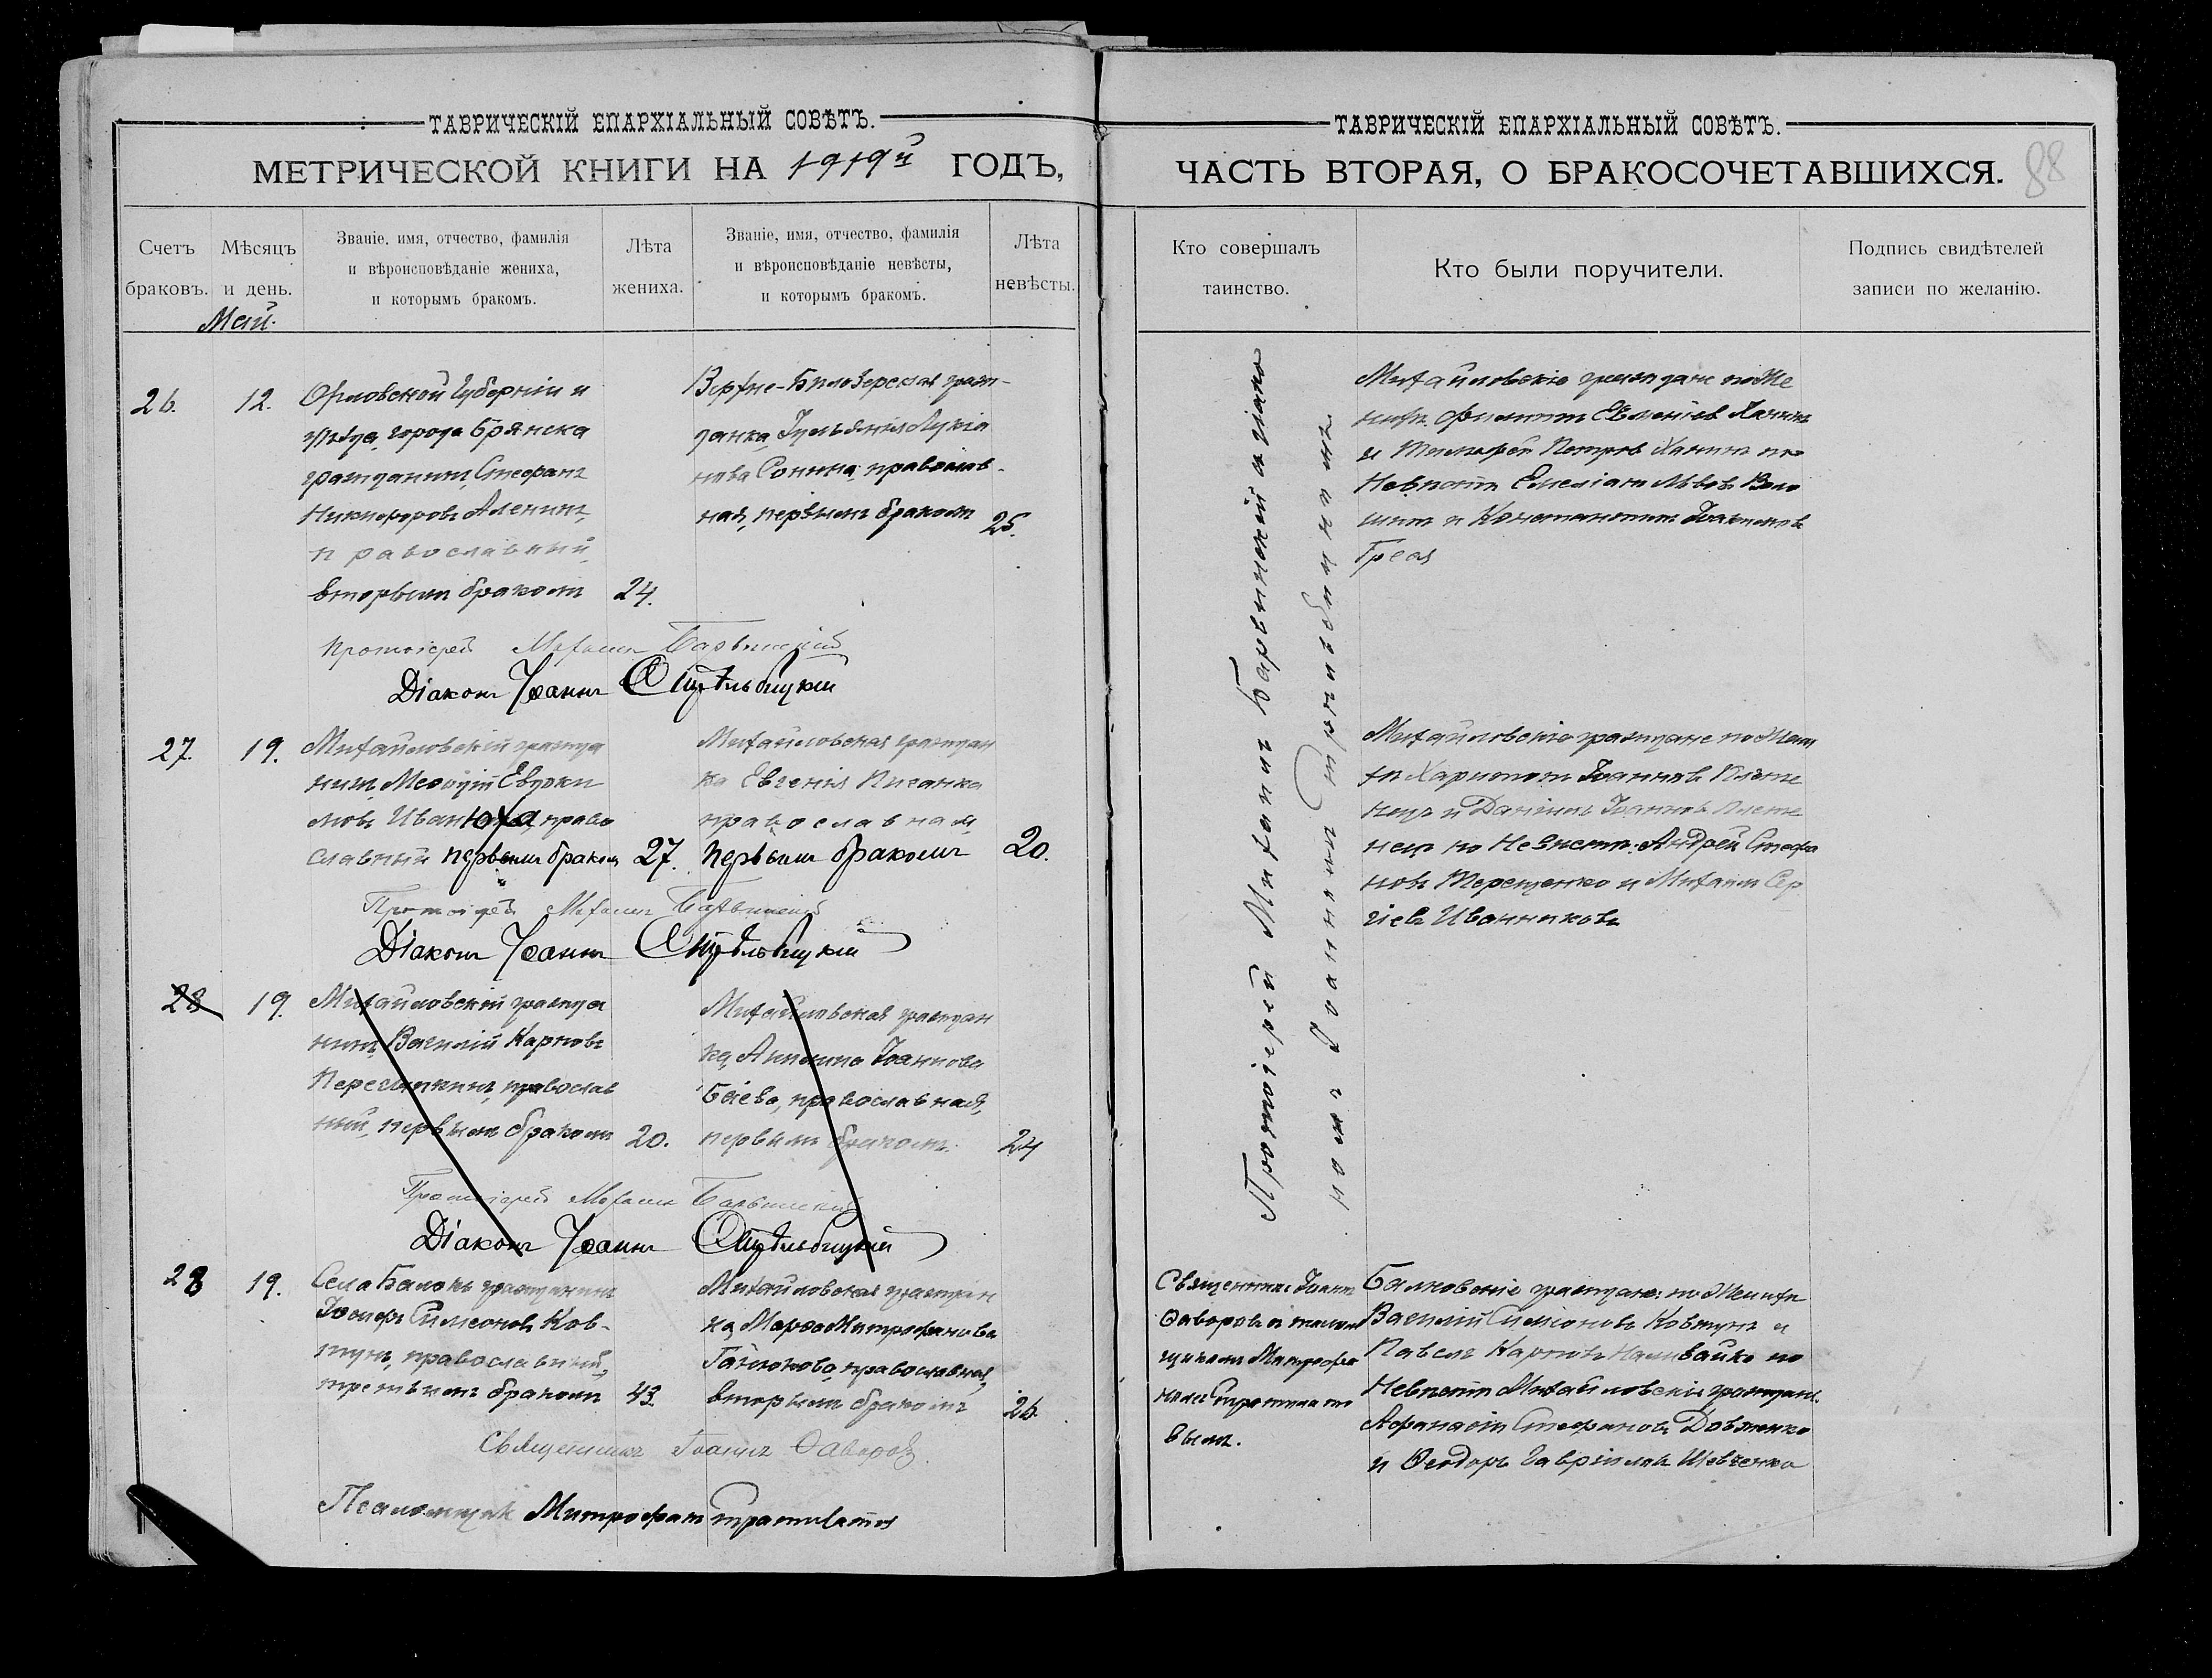 ТАВРИЧЕСКІЙ ЕПАРХІАЛЬНЫЙ СОВѢТЪ.
МЕТРИЧЕСКОЙ КНИГИ НА 1919й ГОДЪ,
Счетъ браковъ.
Мѣсяцъ и день.
Званіе, имя, отчество, фамилія
и вѣроисповѣданіе жениха,
и которымъ бракомъ.
Лѣта
жениха.
Званіе, имя, отчество, фамилія
и вѣроисповѣданіе невѣсты,
и которымъ бракомъ.
Лѣта
невѣсты.
Май.
26.
12.
Орловской губерніи и
уѣзда, города Брянска
гражданинъ, Стефанъ
Никифоровъ Аленинъ,
православный,
вторымъ бракомъ
24.
Верхне-Бѣлозерская граж-
данка, Іуліанія Лукіа
нова Сонина, православ-
ная, первымъ бракомъ
25.
Протоіерей Михаилъ
Діаконъ Іоаннъ
27.
19.
Михайловскій гражда
нинъ, Меѳодій Евдоки
мовъ Иванюха, право
славный первымъ бракомъ
27.
Михайловская граждан
ка Евгенія Писанка
православная,
первымъ бракомъ
20.
Протоіерей Михаилъ
Діаконъ Іоаннъ
28
19.
Михайловскій гражда
нинъ, Василій Карповъ
православ
ный, первымъ бракомъ
20.
Михайловская граждан
ка, Акилина Іоаннова
Баева, православная,
первымъ бракомъ.
24
Протоіерей Михаилъ
Діаконъ Іоаннъ
28
19.
Села Балокъ гражданинъ
Іосифъ Симеоновъ Ков-
тунъ, православный,
третьимъ бракомъ
43.
Михайловская граждан
ка, Марѳа Митрофанова
Гайлюкова, православная,
вторымъ бракомъ
26.
Священникъ Іоаннъ Ѳаворовъ
Псаломщик Митрофанъ
ТАВРИЧЕСКІЙ ЕПАРХІАЛЬНЫЙ СОВѢТЪ.
ЧАСТЬ ВТОРАЯ, О БРАКОСОЧЕТАВШИХСЯ.
88
Кто совершалъ
таинство.
Кто были поручители.
Подпись свидѣтелей
записи по желанію.
Протоіерей Михаилъ съ діако
номъ Іоанномъ
Михайловскіе граждане по Же
нихѣ Филиппъ Евменіевъ Ханинъ
и Тимофей Петровъ Ханинъ по
Невѣстѣ Емеліанъ Львовъ Воло
шинъ и Константинъ Іоакимовъ
Михайловскіе граждане по Жени
хѣ Харитонъ Іоанновъ Плете
нецъ и Даніилъ Іоанновъ Плете
нецъ по Невѣстѣ: Андрей Стефа
новъ Терещенко и Михаилъ Сер
гіевъ Иванниковъ
Священникъ Іоаннъ
Ѳаворовъ съ псалом
щикомъ Митрофа
номъ
вымъ.
Балковскіе граждане: по Женихѣ
Василій Симеоновъ Ковтунъ и
Павелъ Карповъ Наливайко по
Невѣстѣ Михайловскіе граждане.
Афанасій Стефановъ Довженко
и Ѳеодоръ Гавріиловъ Шевченко